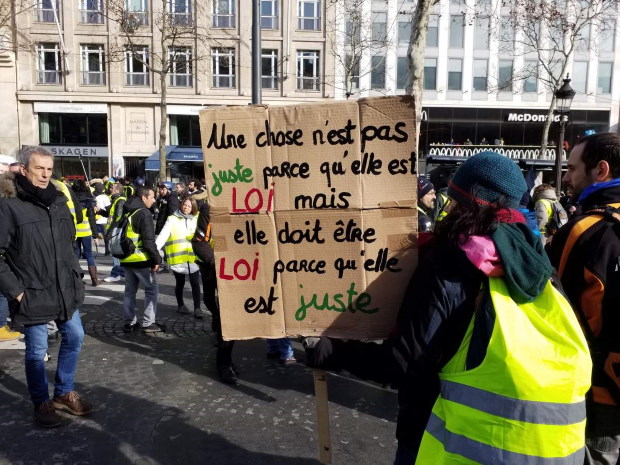 SKAGEN
McDonald's
Une chose n'est pas
juste parce qu'elle est
LOI mais
elle doit être
LOI parce qu'elle
est juste